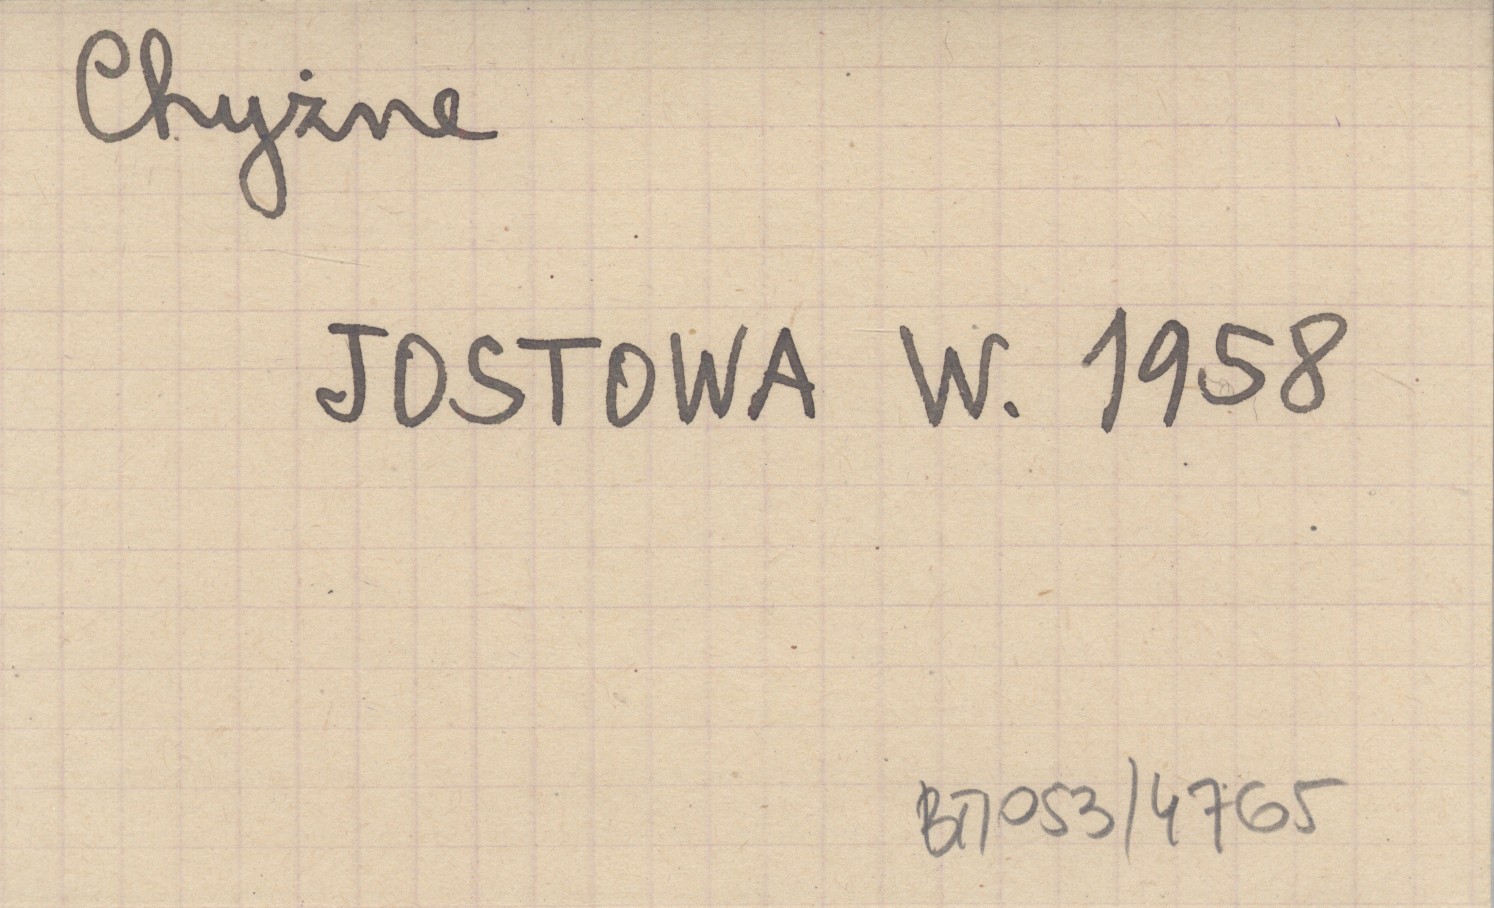 Chyżne
JOSTOWA W. 1958
BП053/4765